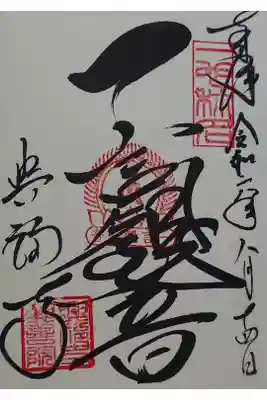 奉拝 令和二年八月十四日
一言観音
興福寺